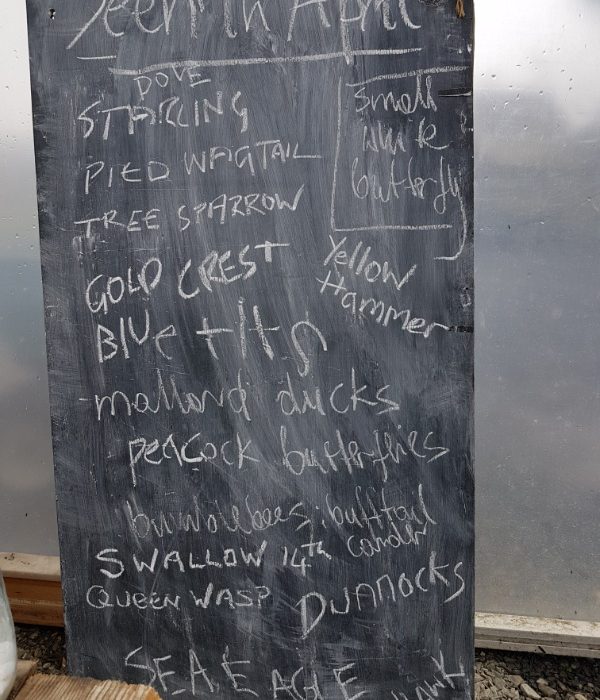 Seen in April
DOVE
STARLING
PIED WAGTAIL
TREE SPARROW
GOLD CREST
BLUE tits
mallard ducks
PEACOCK butterflies
bumblebees: bufftail
SWALLOW 14TH
QUEEN WASP
DUNNOCKS
SEA EAGLE
Small
white
butterfly
Yellow
Hammer